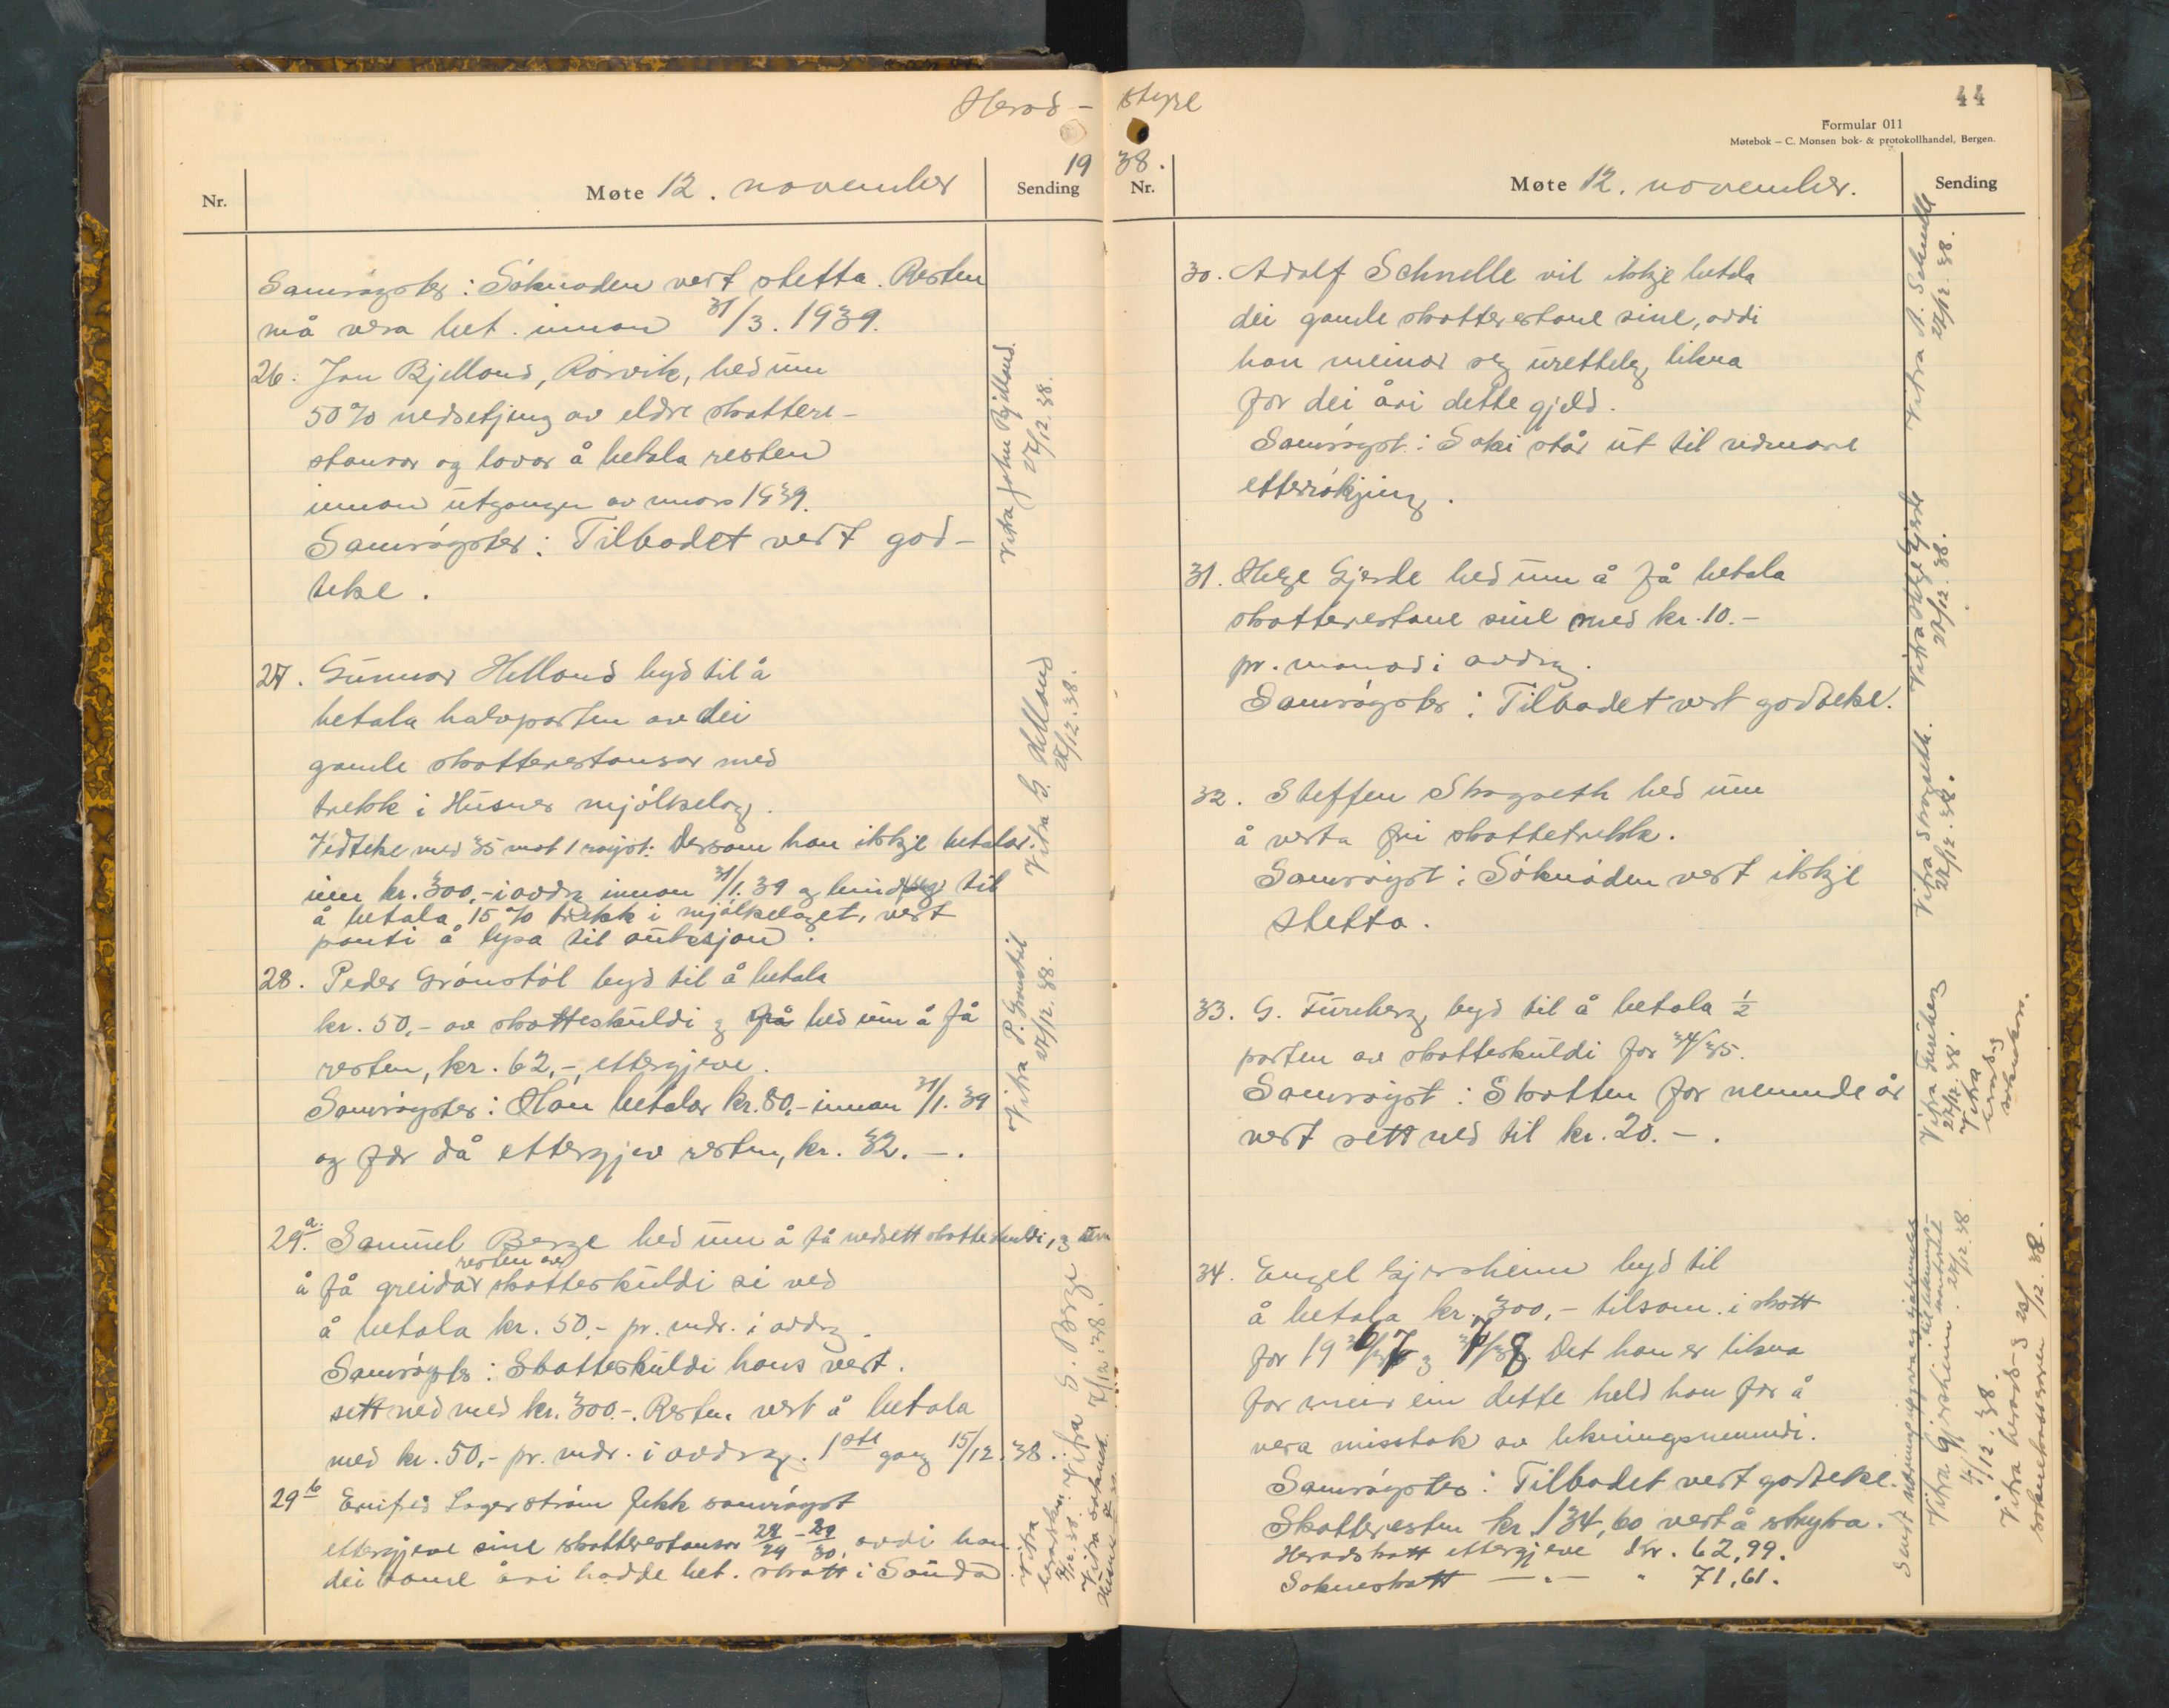 Herad-
Nr.
Møte 12. november
19
Sending
Samrøystes: Søknaden vert stetta. Resten
må vera bet. innan 31/3. 1939.
26. Jon Bjelland, Rørvik, bed um
50% nedsetjing av eldre skattere-
stansar og lovar å betala resten
innan utgangen av mars 1939.
Samrøystes: Tilbodet vert god-
teke.
27. Gunnar Helland byd til å
betala halvparten av dei
gamle skatterestansar med
trekk i Husnes mjølkelag.
Vedteke med 35 mot 1 røyst: Dersom han ikkje betalar
inn kr. 300,- i avdrag innan 31/1. 39 og bind seg til
å betala 15% trekk i mjølkelaget, vert
panti å lysa til auksjon.
28. Peder Grønstøl byd til å betala
kr. 50,- av skatteskuldi og får bed um å få
resten, kr. 62,-, ettergjeve.
Samrøystes: Han betalar kr. 80,- innan 31/1. 39
og får då ettergjev resten, kr. 32.-.
29.a. Samuel Berge bed um å få nedsett skatteskuldi, og um
å få greidar resten av skatteskuldi si ved
å betala kr. 50.- pr. mdr. i avdrag.
Samrøystes: Skatteskuldi hans vert
sett ned med kr. 300.-. Resten vert å betala
med kr. 50,- pr. mdr. i avdrag. 1ste gang 15/12. 38.
29b Lagerstrøm fekk samrøyst
ettergjeve sine skatterestansar 28/29 - 29/30, avdi han
dei same åri hadde bet. skatt i Sauda
Vitra John Bjelland.
27/12. 38.
Vitra G. Helland
27/12. 38.
Vitra P. Grønstøl
27/12. 38.
Vitra S. Berge
7/12. 38.
Vitra
styre
44
Formular 011
Møtebok – C. Monsen bok- & protokollhandel, Bergen.
38.
Nr.
Møte 12. november.
Sending
30. Adolf Schnelle vil ikkje betala
dei gamle skatterestane sine, avdi
han meiner seg uretteleg likna
for dei åri dette gjeld.
Samrøyst.: Saki står ut til nærmare
etterrøkjing.
31. Helge Gjerde bed um å få betala
skatterestane sine med kr. 10.-
pr. månad i avdrag.
Samrøystes: Tilbodet vert godteke.
32. Steffen Skogseth bed um
å verta fri skattetrekk.
Samrøyst: Søknaden vert ikkje
stetta.
33. G. Furuberg byd til å betala 1/2
parten av skatteskuldi for 34/35.
Samrøyst: Skatten for nemnde år
vert sett ned til kr. 20.-.
34. Engel Gjersheim byd til
å betala kr. 300,- tilsam. i skatt
for 1936/37 og 37/38. Det han er likna
for meir enn dette held han for å
vera misstak av likningsnemndi.
Samrøystes: Tilbodet vert godteke.
Skatteresten kr. 134,60 vert å stryka.
Heradskatt ettergjeve kr. 62,99.
Sokneskatt —"— " 71,61.
Vitra A. Schnelle
27/12. 38.
Vitra Helge Gjerde
27/12. 38.
Vitra Skogseth.
27/12. 38.
Vitra Furuberg
27/12. 38.
Vitra
herads- og
soknekass.
Vitra Gjersheim
27/12. 38
Vitra herads- og
soknekasseraren